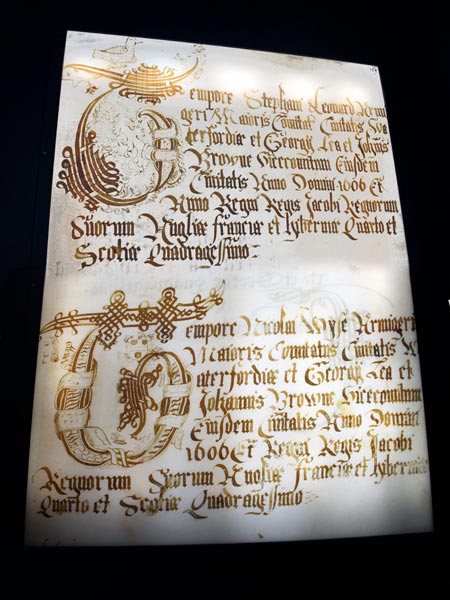 Tempore Stephani Leonard Armi
geri Maioris Comitat Civitatis Wa
terfordiæ et Georgij Lea et Johnis
Browne Vicecomitum Eiusdem
Civitatis Anno Domini 1606 Et
Anno Regni Regis Jacobi Regnorum
Suorum Angliæ franciæ et hyberniæ Quarto et
Scotiæ Quadragessimo :
Tempore Nicolai Wyse Armigeri
Maioris Comitatus Civitatis W
aterfordiæ et Georgij Lea et
Johannis Browne Vicecomitum
Eiusdem Civitatis Anno Domini
1606 Et Regni Regis Jacobi
Regnorum Suorum Angliæ Franciæ et hyberniæ
Quarto et Scotiæ Quadragessimo